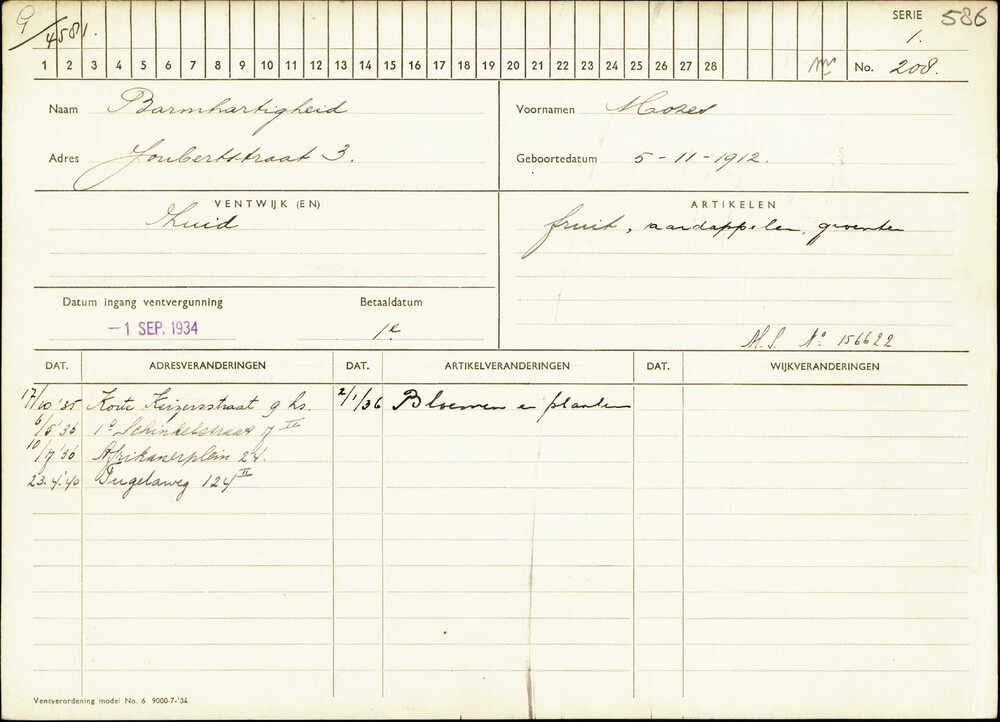 G/4581.
SERIE 586
1.
1 2 3 4 5 6 7 8 9 10 11 12 13 14 15 16 17 18 19 20 21 22 23 24 25 26 27 28 No. 208.
Naam Barmhartigheid
Voornamen Mozes
Adres Joubertstraat 3.
Geboortedatum 5-11-1912.
VENTWIJK (EN)
Zuid
ARTIKELEN
fruit, aardappelen, groenten
Datum ingang ventvergunning
-1 SEP. 1934
Betaaldatum
1e
M.S. No 156622
DAT. ADRESVERANDERINGEN DAT. ARTIKELVERANDERINGEN DAT. WIJKVERANDERINGEN
17/10 '35 Korte Keizersstraat 9 hs. 2/1/36 Bloemen en planten
6/5 '36 1e Schinkelstraat 7 II
10/7 '36 Afrikanerplein 24.
23.4.'40 Tugelaweg 124 II
Ventverordening model No. 6. 9000-7-'34